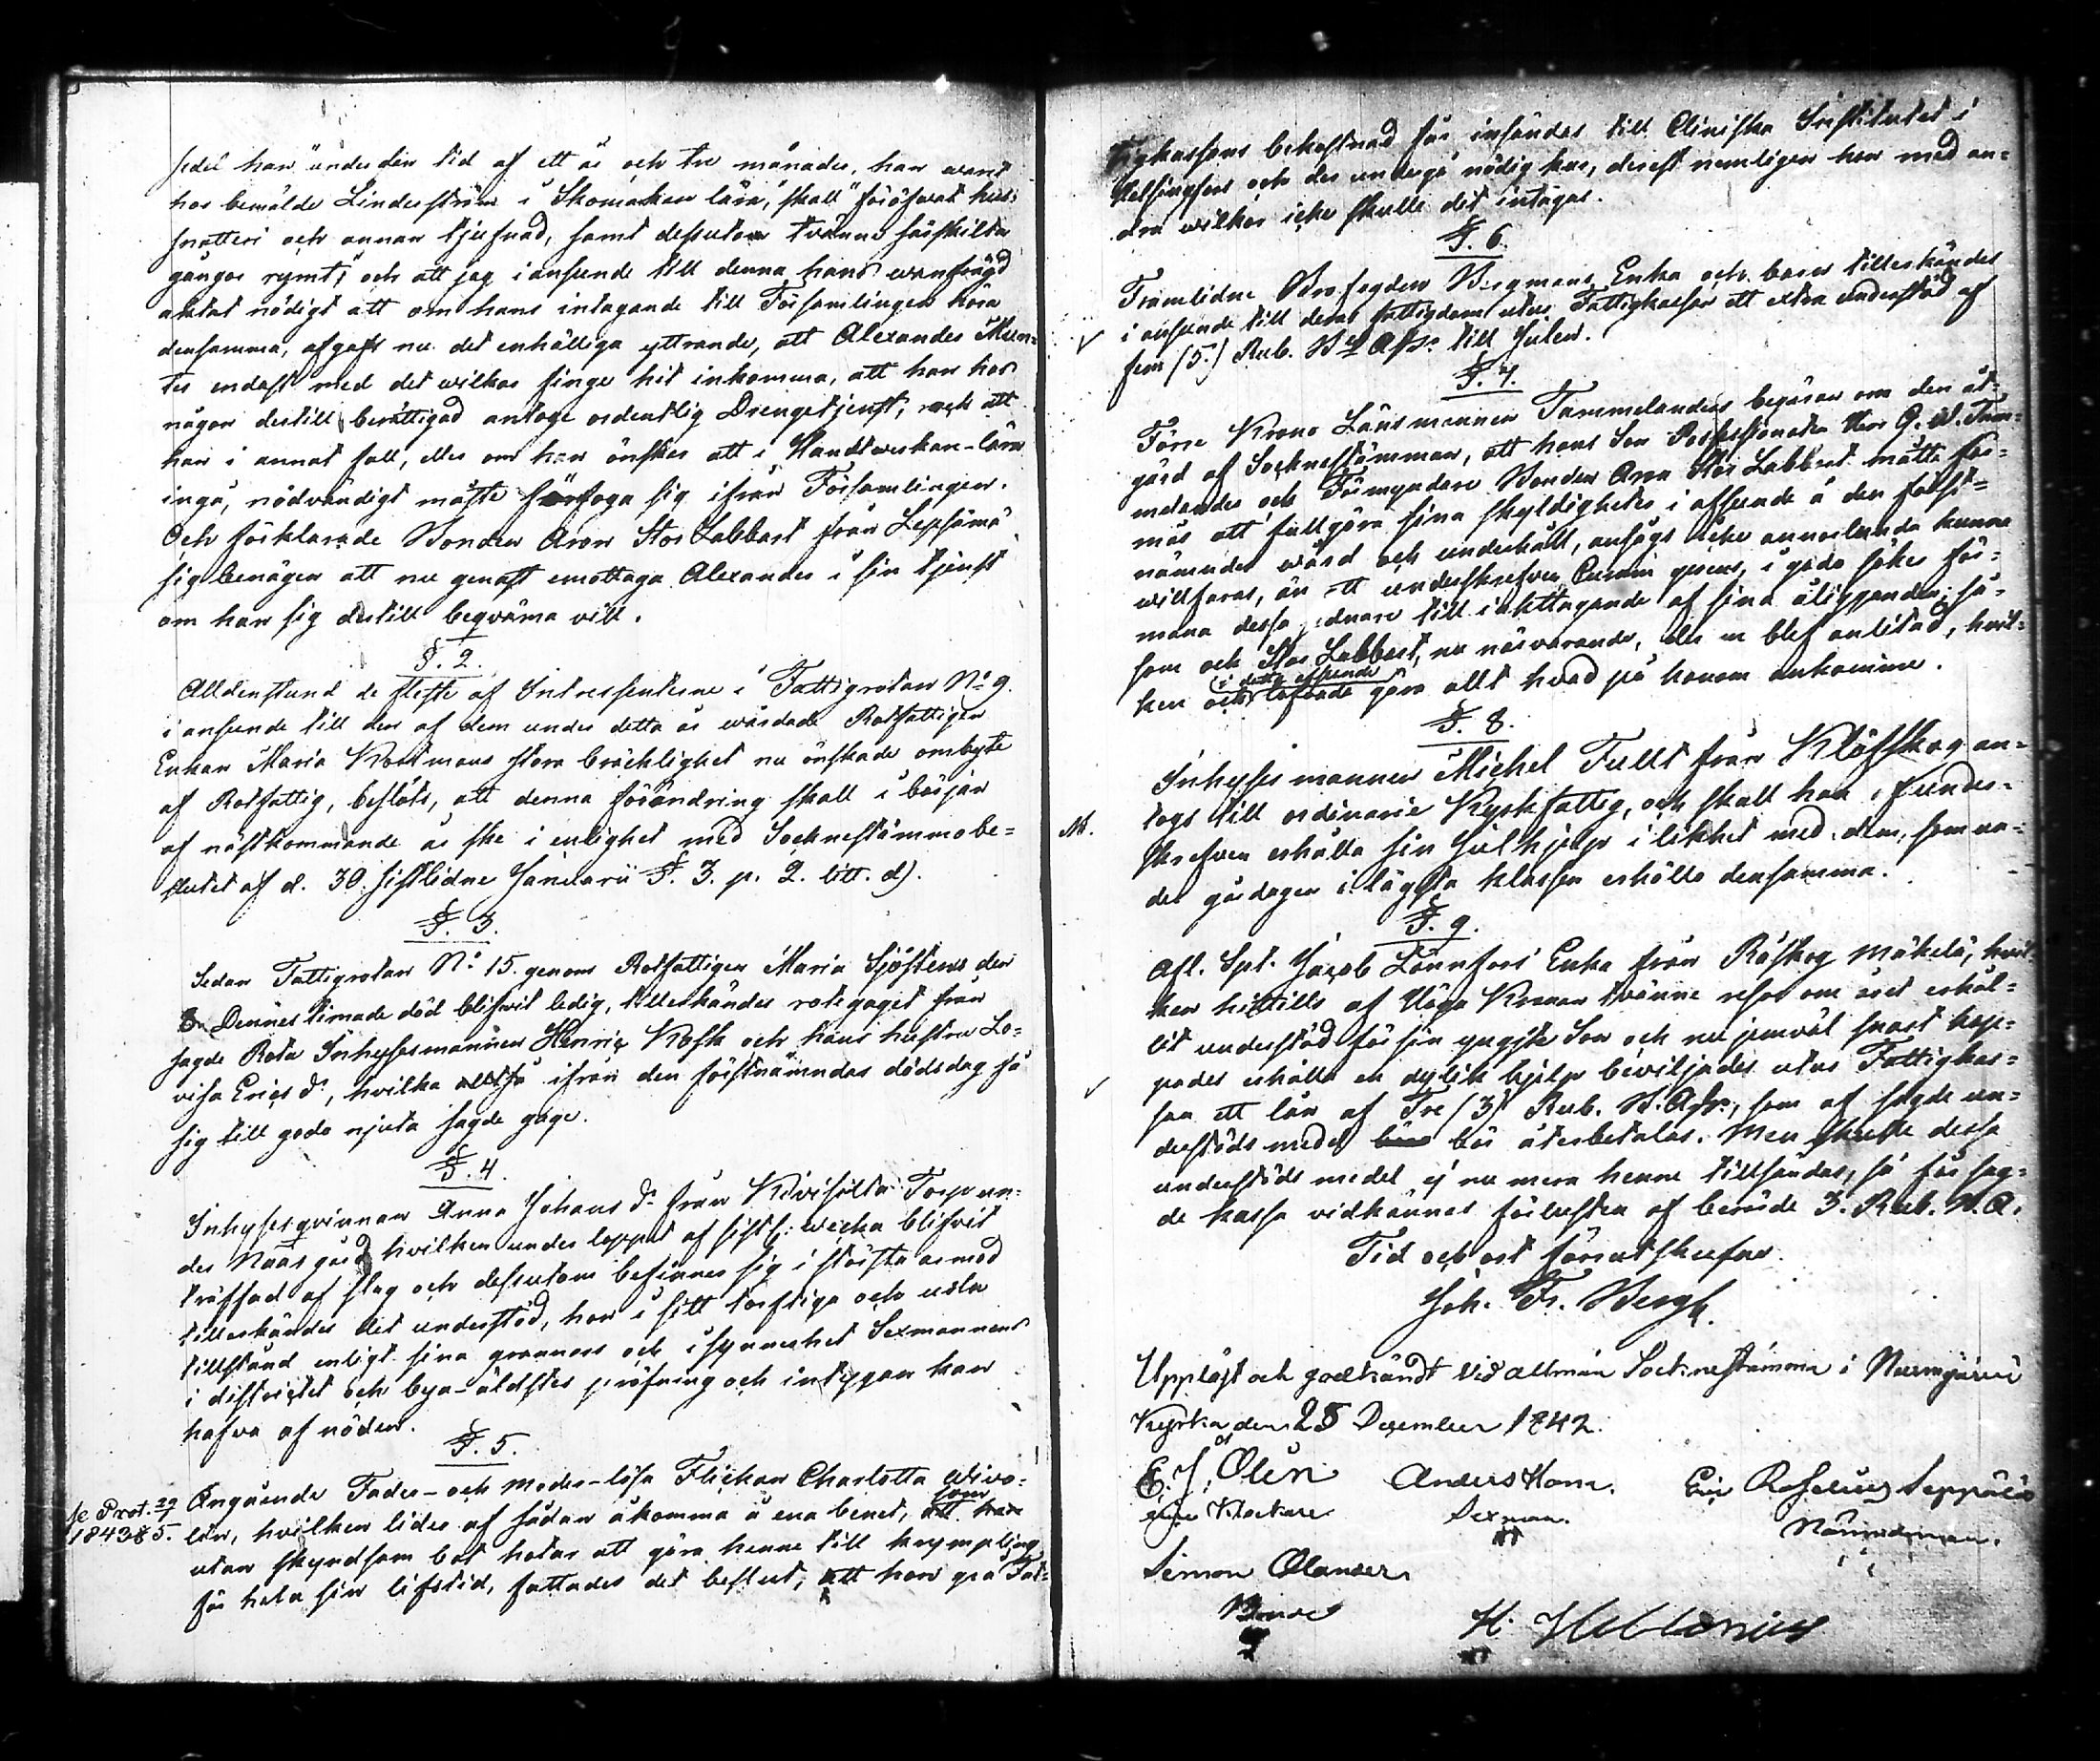 sedel han "under den tid af ett år och tre månader, han varit
hos bemälde Linderström i Skomakare lära, skall" föröfvat hus-
snatteri och annan tjufnad, samt dessutom tvänne särskilta
gångor rymt; och att jag i anseende till denna hans vanfrägd
aktat nödigt att om hans intagande till Församlingen höra
densamma, afgafs nu det enhälliga yttrande, att Alexander Mun-
ter endast med det wilkor finge hit inkomma, att han hos
någon dertill berättigad antoge ordentlig Drengetjenst, och att
han i annat fall, eller om han önskar att i Handtverkare-lära
ingå, nödvändigt måste förfoga sig ifrån Församlingen.
Och förklarade Bonden Aron Stor Labbart från Lepsämä
sig benägen att nu genast emottaga Alexander i sin tjenst
om han sig dertill beqväma vill.
§. 2.
Alldenstund de fleste af Intressenterne i Fattigrotan No 9.
i anseende till den af dem under detta år vårdade Rotfattigen
Enkan Maria Kortmans stora bräcklighet nu önskade ombyte
af Rotfattig, beslöts, att denna förändring skall i början
af nästkommande år ske i enlighet med Sockenstämmobe-
slutet af d. 30. sistlidne Januarii §. 3. p. 2. litt. d).
§. 3.
Sedan Fattigrotan No 15. genom Rotfattigen Maria Sjöstens den
Dennes timade död blifvit ledig, tillerkändes rotegaget från
sagde Rota Inhysesmannen Henric Kosk och hans hustru Lo-
visa Erics dr, hvilka alltså ifrån den förstnämndas dödsdag få
sig till godo njuta sagde gage.
§. 4.
Inhysesqvinnan Anna Johans dr från Kivisilta Torp un-
der Naargård hvilken under loppet af sistl. vecka blifvit
träffad af slag och dessutom befinner sig i största armod
tillerkändes det understöd, hon i sitt torftiga och usla
tillstånd enligt sina grannars och i synnerhet Sexmannens
i districtet och bya-åldstes pröfning och intygan kan
hafva af nöden.
§. 5.
se Prot. 29/7
1843 § 5.
Angående Fader- och moder-lösa Flickan Charlotta Wiro-
lin, hvilken lider af sådan åkomma å ena benet, som
utan skyndsam bot hotar att göra henne till krympling
för hela sin lifstid, fattades det beslut, att hon på Fat-
tigkassans bekostnad får insändas till Cliniska Institutet i
Helsingfors och der undergå nödig kur, derest nemligen hon med an-
dra wilkor icke skulle det intagas.
§. 6.
Framlidne Brofogden Bergmans Enka och barn tillerkändes
i anseende till deras fattigdom utur Fattigkassan ett extra understöd af
fem (5.) Rub. Bco Ass. till Julen.
§. 7.
Förre Krono Länsmannen Tammelanders begäran om den åt-
gärd af Sockenstämman, att hans Son Possessionaten Herr G. W. Tam-
melander och Förmyndare Bonden Aron Stor Labbart måtte för-
mås att fullgöra sina skyldigheter i afseende å den först-
nämndes vård och underhåll, ansågs icke annorlunda kunna
willfaras, än att underskrefven Curam gerens, i godo söker för-
mana dessa sednare till iakttagande af sina åligganden; så-
som och Stor Labbart, nu närvarande, der om blef anlitad, hvil-
ken och i detta afseende lofvade göra allt hvad på honom ankomme.
§. 8.
Inhysesmannen Michel Fullt från Klöfskog an-
NB.
togs till ordinarie Kyrkfattig, och skall han, funder-
skrefven erhålla sin Julhjelp i likhet med dem, som un-
der gårdagen i lägsta klassen erhölle densamma.
§. 9.
Afl. Spt. Jacob Lönnfors Enka från Röskog Mäkelä, hvil-
ken hittills af Höga Kronan tvänne resor om året erhål-
lit understöd för sin yngste Son och nu jemväl snart hop-
pades erhålla en dylik hjelp beviljades utur Fattigkas-
san ett lån af Tre (3) Rub. B. Ass., som af sagde un-
derstöds medel bör återbetalas. Men skulle dessa
understöds medel ej nu mera henne tillsändas, så får sag-
de kassa vidkännas förlusten af berörde 3. Rub. B. A.
Tid och ort förutskrefne.
Joh. Fr. Bergh.
Uppläst och godkändt vid allmän Sockenstämma i Nurmijärvi
Kyrka den 25 December 1842.
E. J. Olin
Klockare
Anders Horn.
Sexman.
Eric Roselius Seppälä
Nämndeman.
Simon Olander
Bonde
H. Heleonius